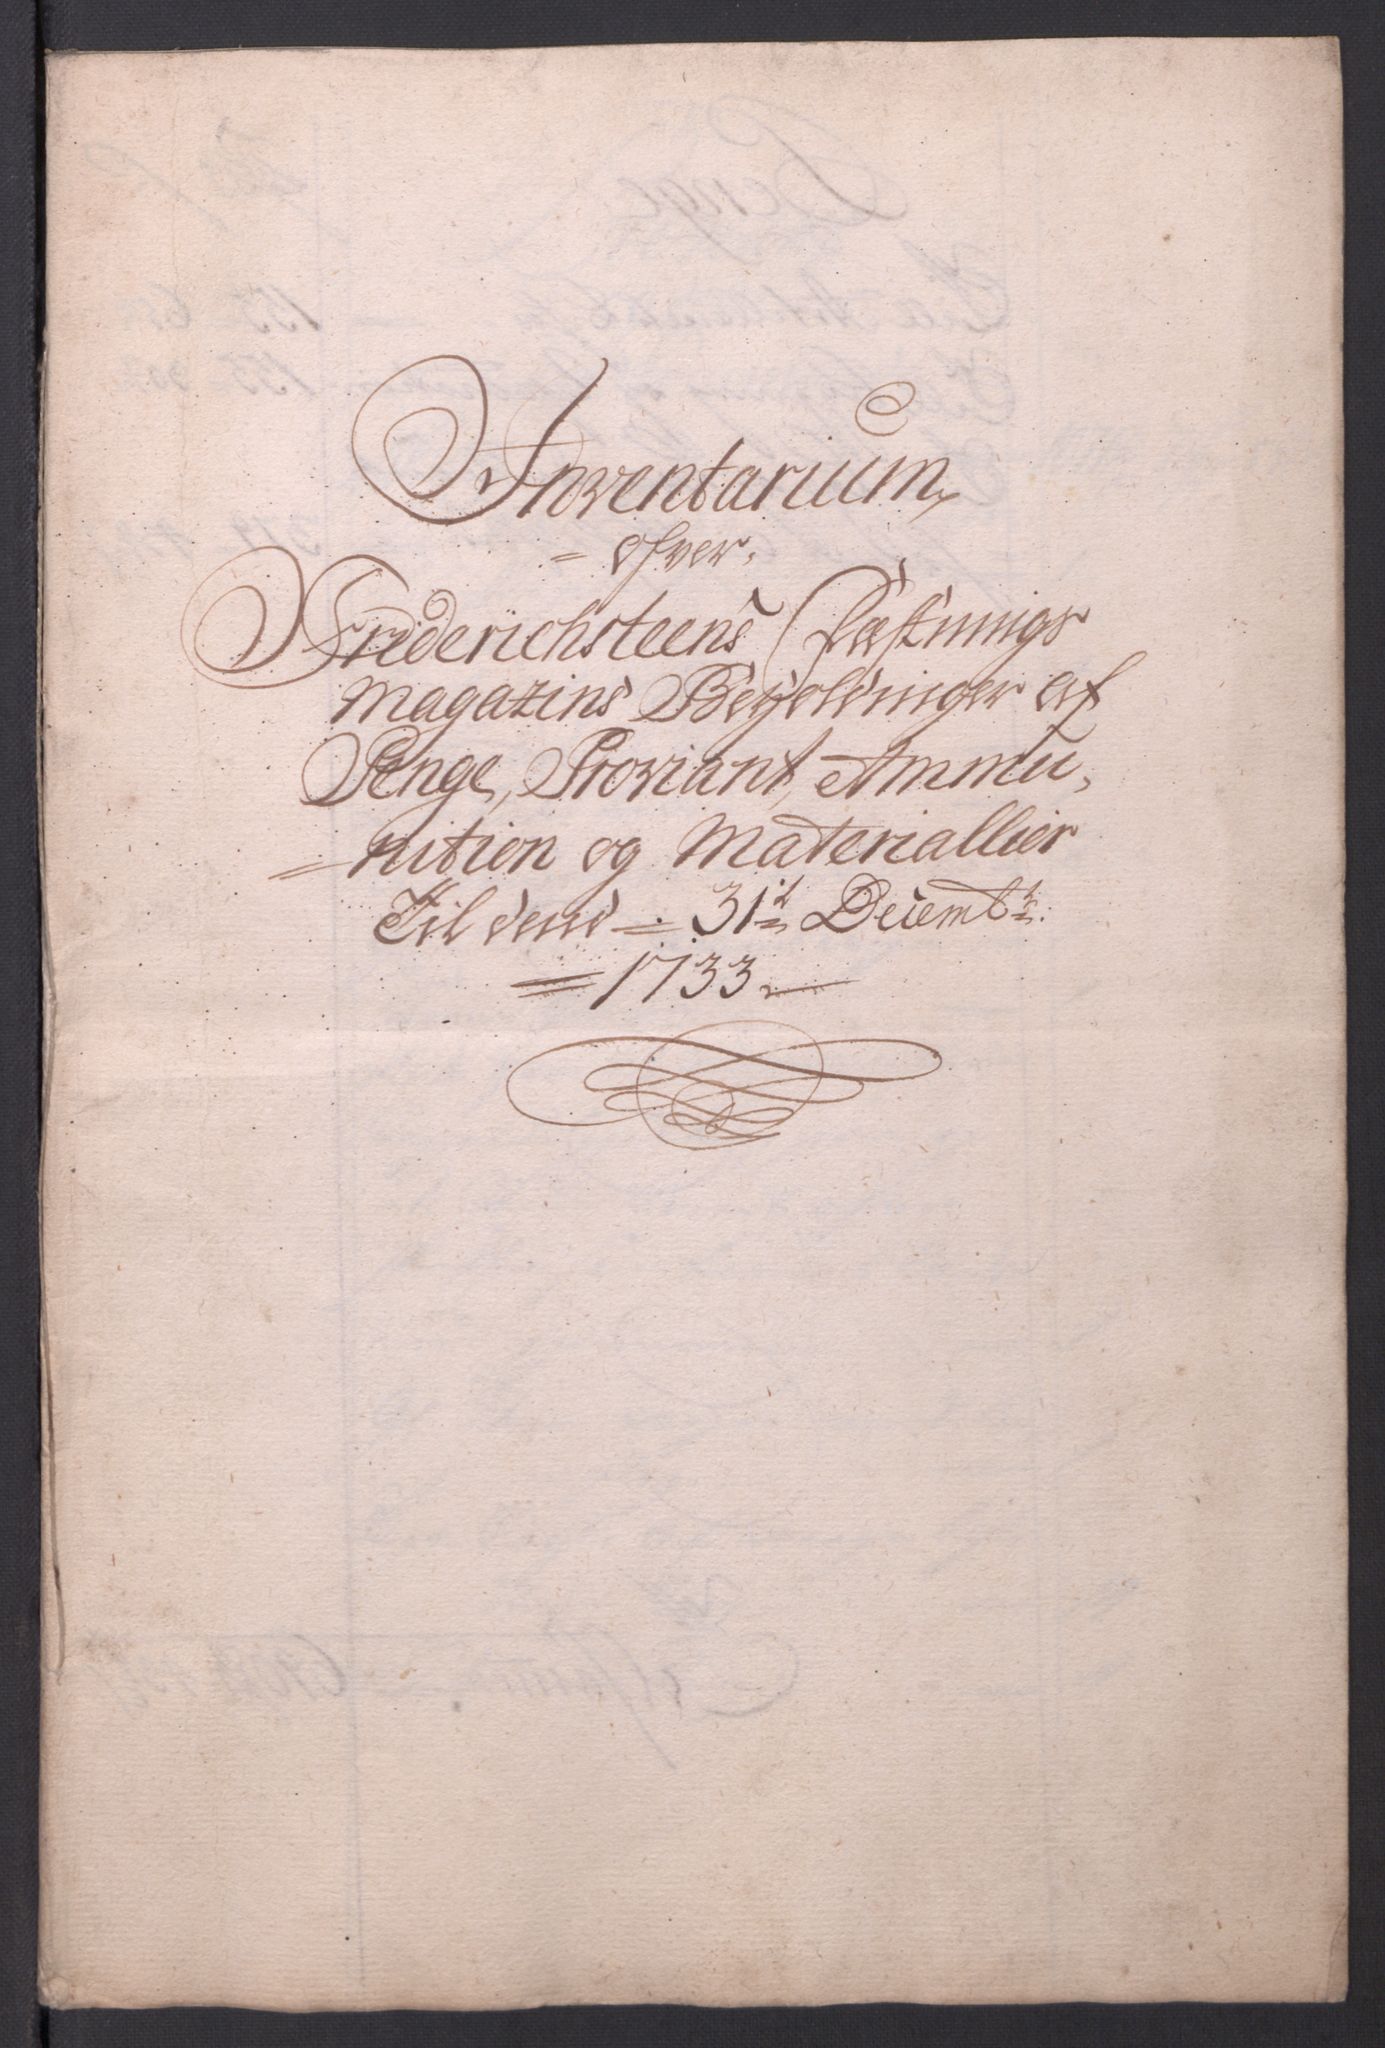 Inventarium
= ofver.
Friderichsteens Fæstnings
Magazins Beholdninger af
Penge, Proviant, Ammu,
= nition og Materiallier
Til dend = 31te Decembr:
= 1733